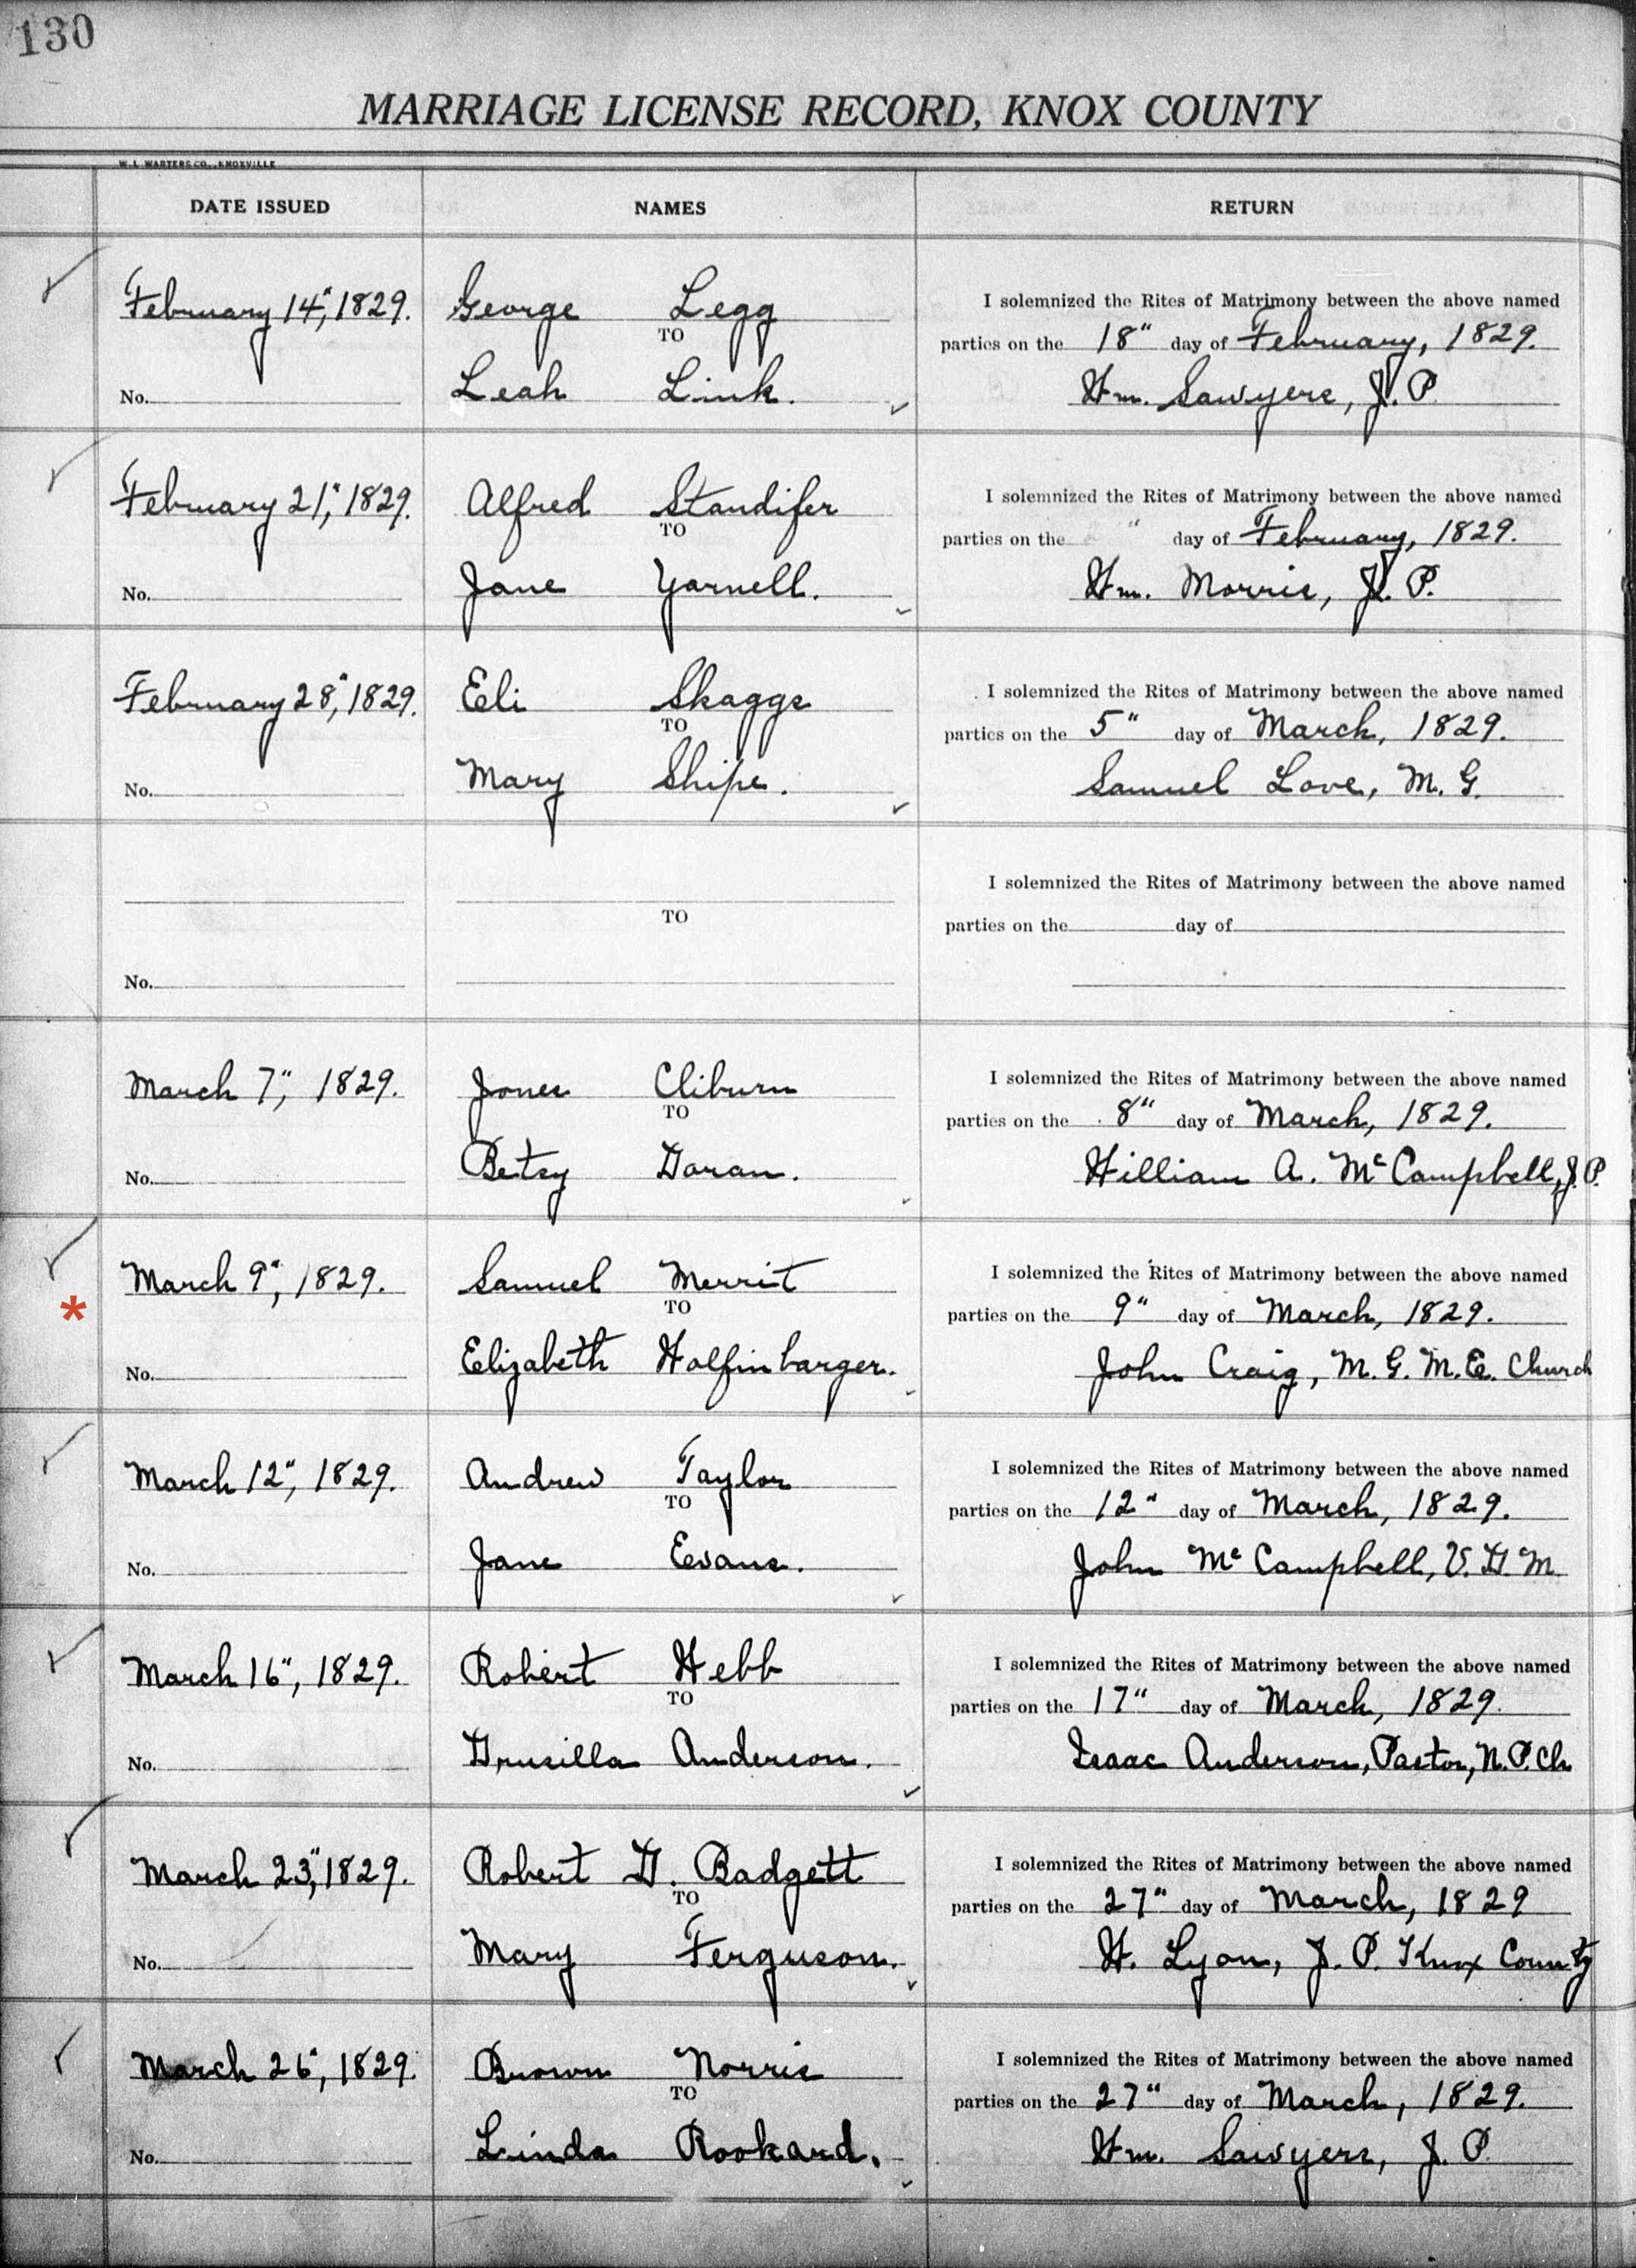 130
MARRIAGE LICENSE RECORD, KNOX COUNTY
W. L. WARTERS CO., KNOXVILLE
DATE ISSUED NAMES RETURN
February 14", 1829. George Legg I solemnized the Rites of Matrimony between the above named
TO parties on the 18" day of February, 1829.
No. Leah Link. Wm. Sawyers, J. P.
February 21", 1829. Alfred Standifer I solemnized the Rites of Matrimony between the above named
TO parties on the " day of February, 1829.
No. Jane Yarnell. Wm. Morris, J. P.
February 28", 1829. Eli Skaggs I solemnized the Rites of Matrimony between the above named
TO parties on the 5" day of March, 1829.
No. Mary Shipe. Samuel Love, M. G.
I solemnized the Rites of Matrimony between the above named
TO parties on the day of
No.
March 7", 1829. Jones Cliburn I solemnized the Rites of Matrimony between the above named
TO parties on the 8" day of March, 1829.
No. Betsy Doran. William A. McCampbell, J. P.
March 9", 1829. Samuel Merrit I solemnized the Rites of Matrimony between the above named
* TO parties on the 9" day of March, 1829.
No. Elizabeth Halfinbarger. John Craig, M. G. M. E. Church
March 12", 1829. Andrew Taylor I solemnized the Rites of Matrimony between the above named
TO parties on the 12" day of March, 1829.
No. Jane Evans. John McCampbell, V. D. M.
March 16", 1829. Robert Webb I solemnized the Rites of Matrimony between the above named
TO parties on the 17" day of March, 1829.
No. Drusilla Anderson. Isaac Anderson, Pastor, N. P. Ch
March 23", 1829. Robert D. Badgett I solemnized the Rites of Matrimony between the above named
TO parties on the 27" day of March, 1829
No. Mary Ferguson. W. Lyon, J. P. Knox County
March 26", 1829. Brown Norris I solemnized the Rites of Matrimony between the above named
TO parties on the 27" day of March, 1829.
No. Linda Rookard. Wm. Sawyers, J. P.